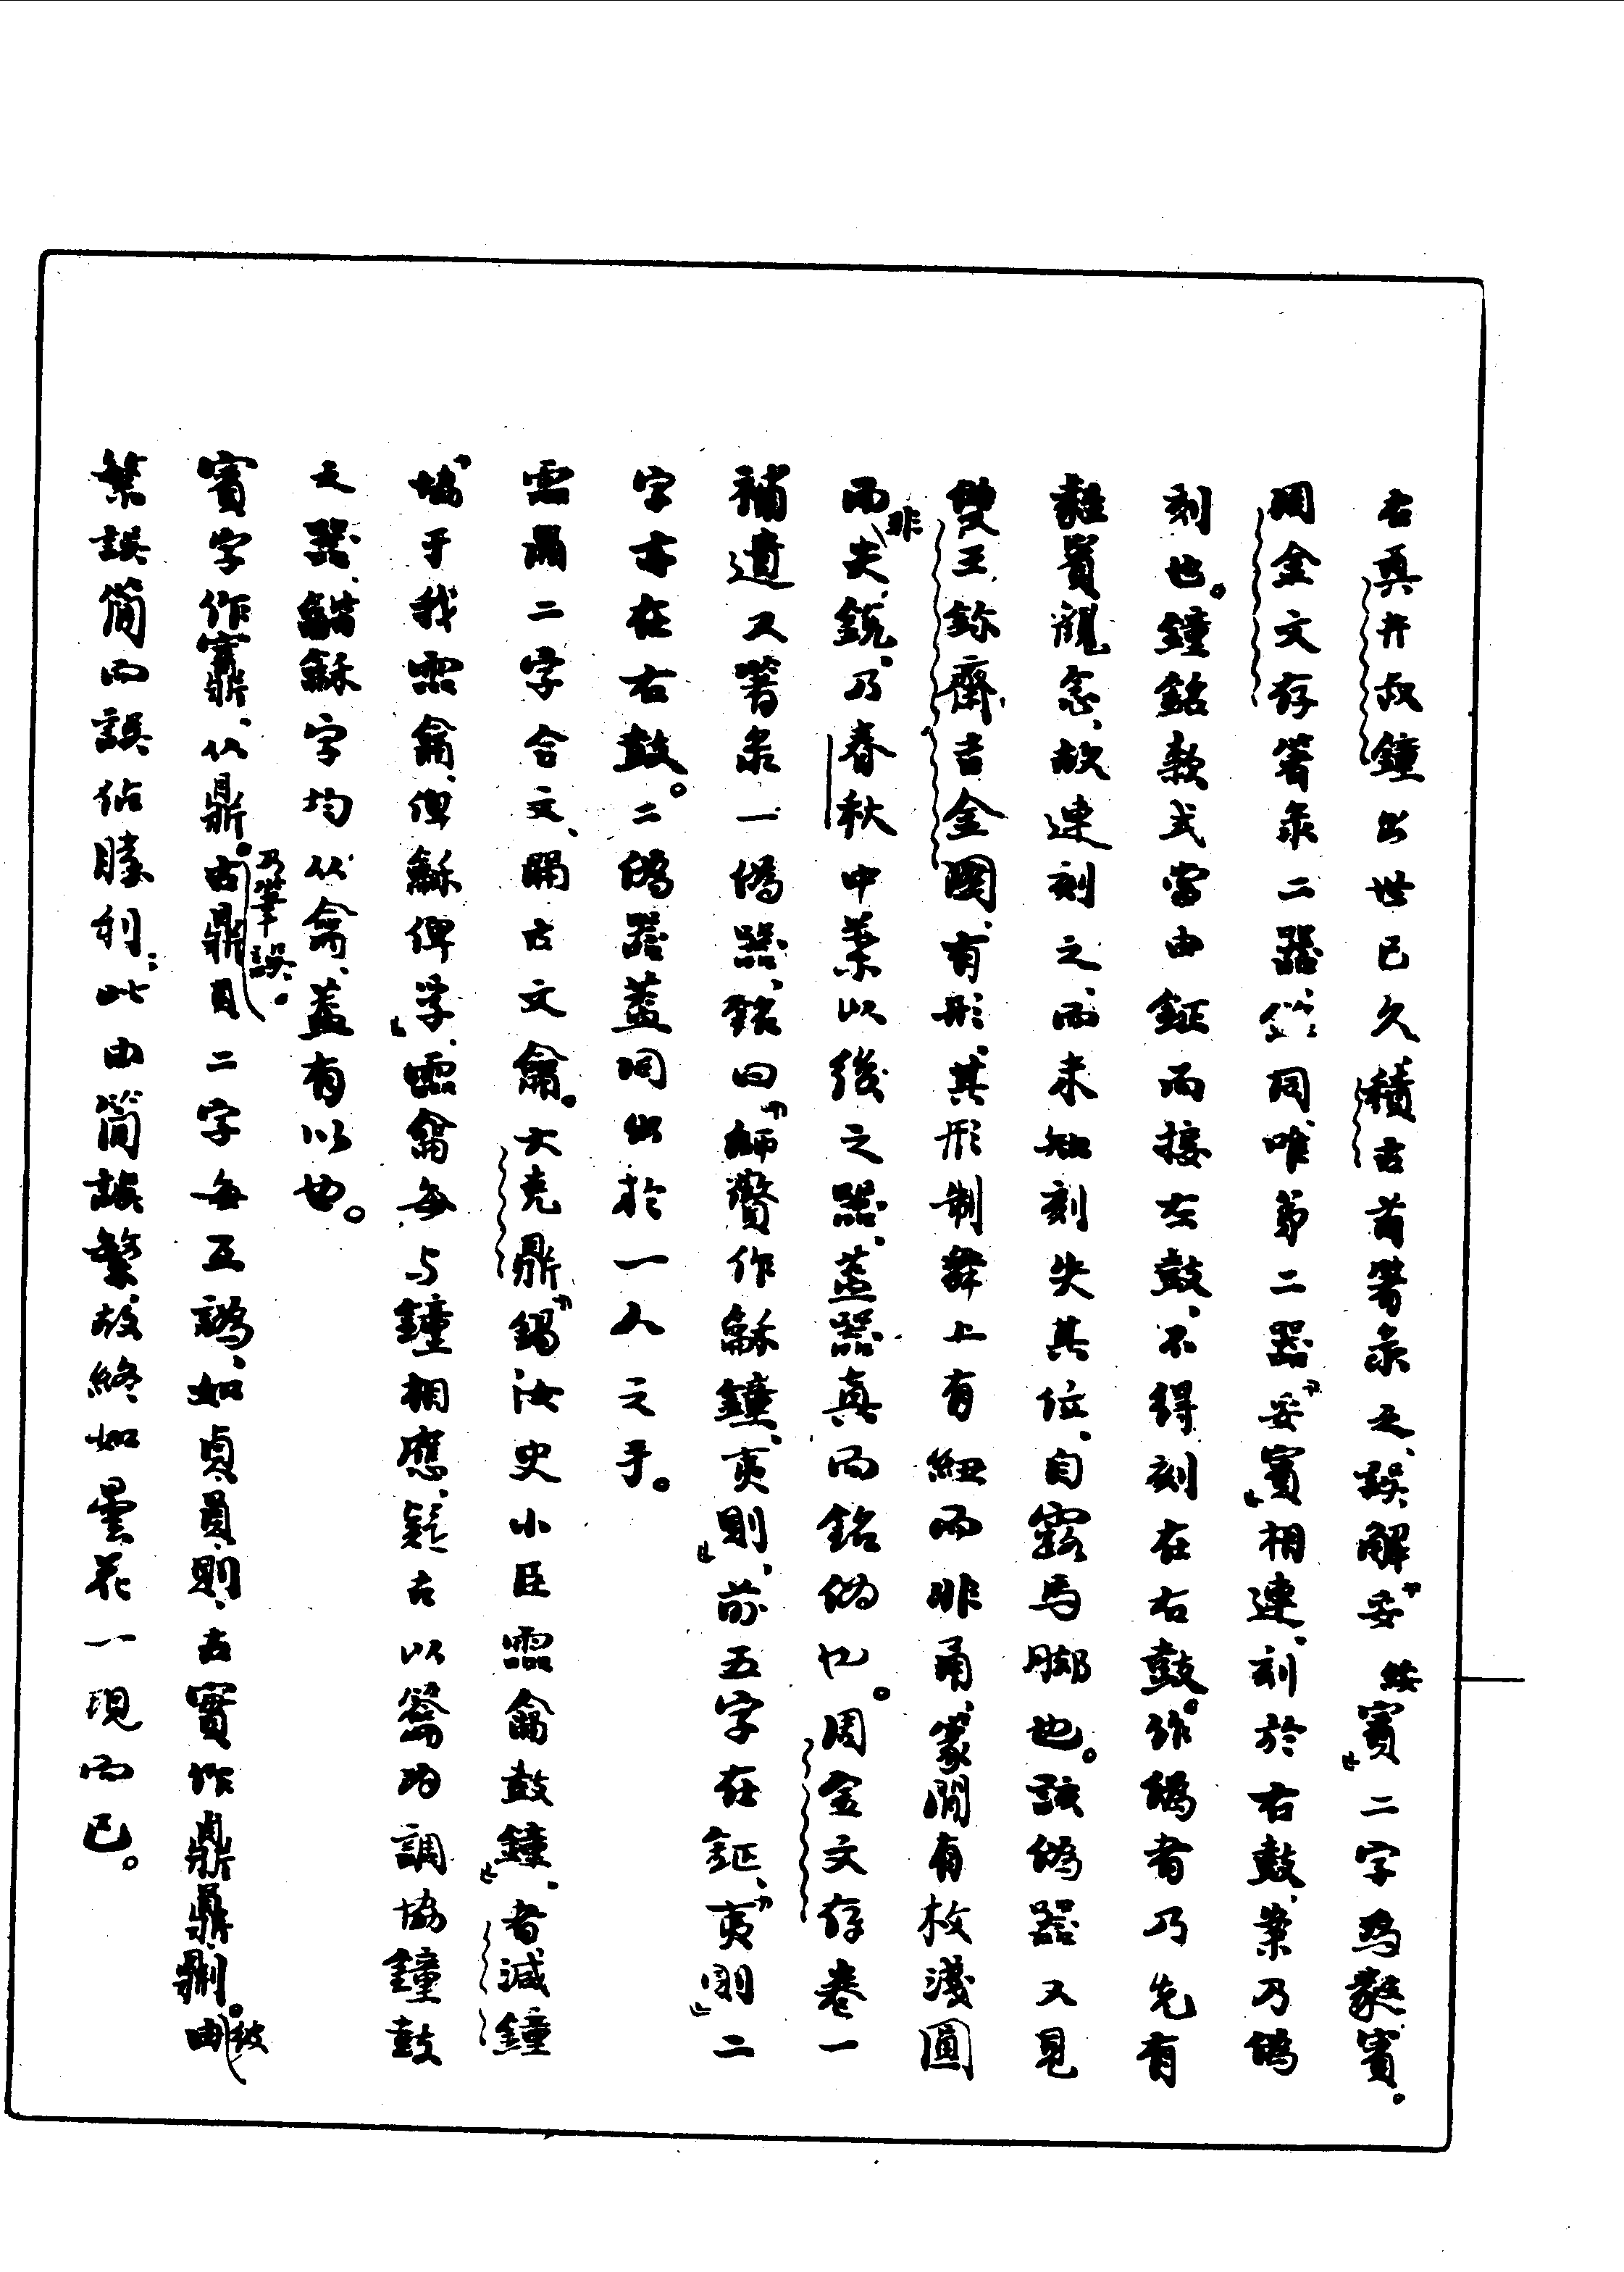 右真井叔鐘出世已久積古首箸彔之、誤解「妥綏賓」二字為㜎賓。
周金文存箸彔二器銘同唯第二器「妥賓」相連、刻於右鼓、案乃偽
刻也。鐘銘款式當由鉦而接左鼓、不得刻在右鼓。作偽者乃先有
賓觀念、故連刻之、而未知刻失其位、自露馬脚也。該偽器又見
雙王鉥齋、吉金圖、有形、其形制舞上有紐而非甬、篆間有枚淺圓
而非尖銳、乃春秋中葉以後之器、蓋器真而銘偽也。周金文存卷一
補遺又箸彔一偽器、銘曰「師㝨作龢鐘、夷則」、前五字在鉦、「夷則」二
字亦在右鼓。二偽器蓋同出於一人之手。
霝龠二字合文、古文龠。大克鼎「錫汝史小臣霝龠鼓鐘」、者減鐘
「協于我霝龠、俾龢俾孚」、霝龠每与鐘相應、疑古以為調協鐘鼓
之器、龤龢字均从龠、蓋有以也。
賓字作、从鼎。古鼎貝二字每互譌、乃筆誤。如貞、員、則、古實作鼎。由被
繁誤簡而誤佔勝利;此由簡誤繁、故終如曇花一現而已。